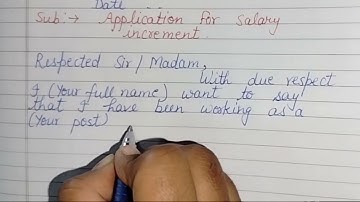 Date
Sub:→ Application for salary
increment
Respected Sir/Madam,
With due respect
I (Your full name) want to say
that I have been working as a
(Your post)